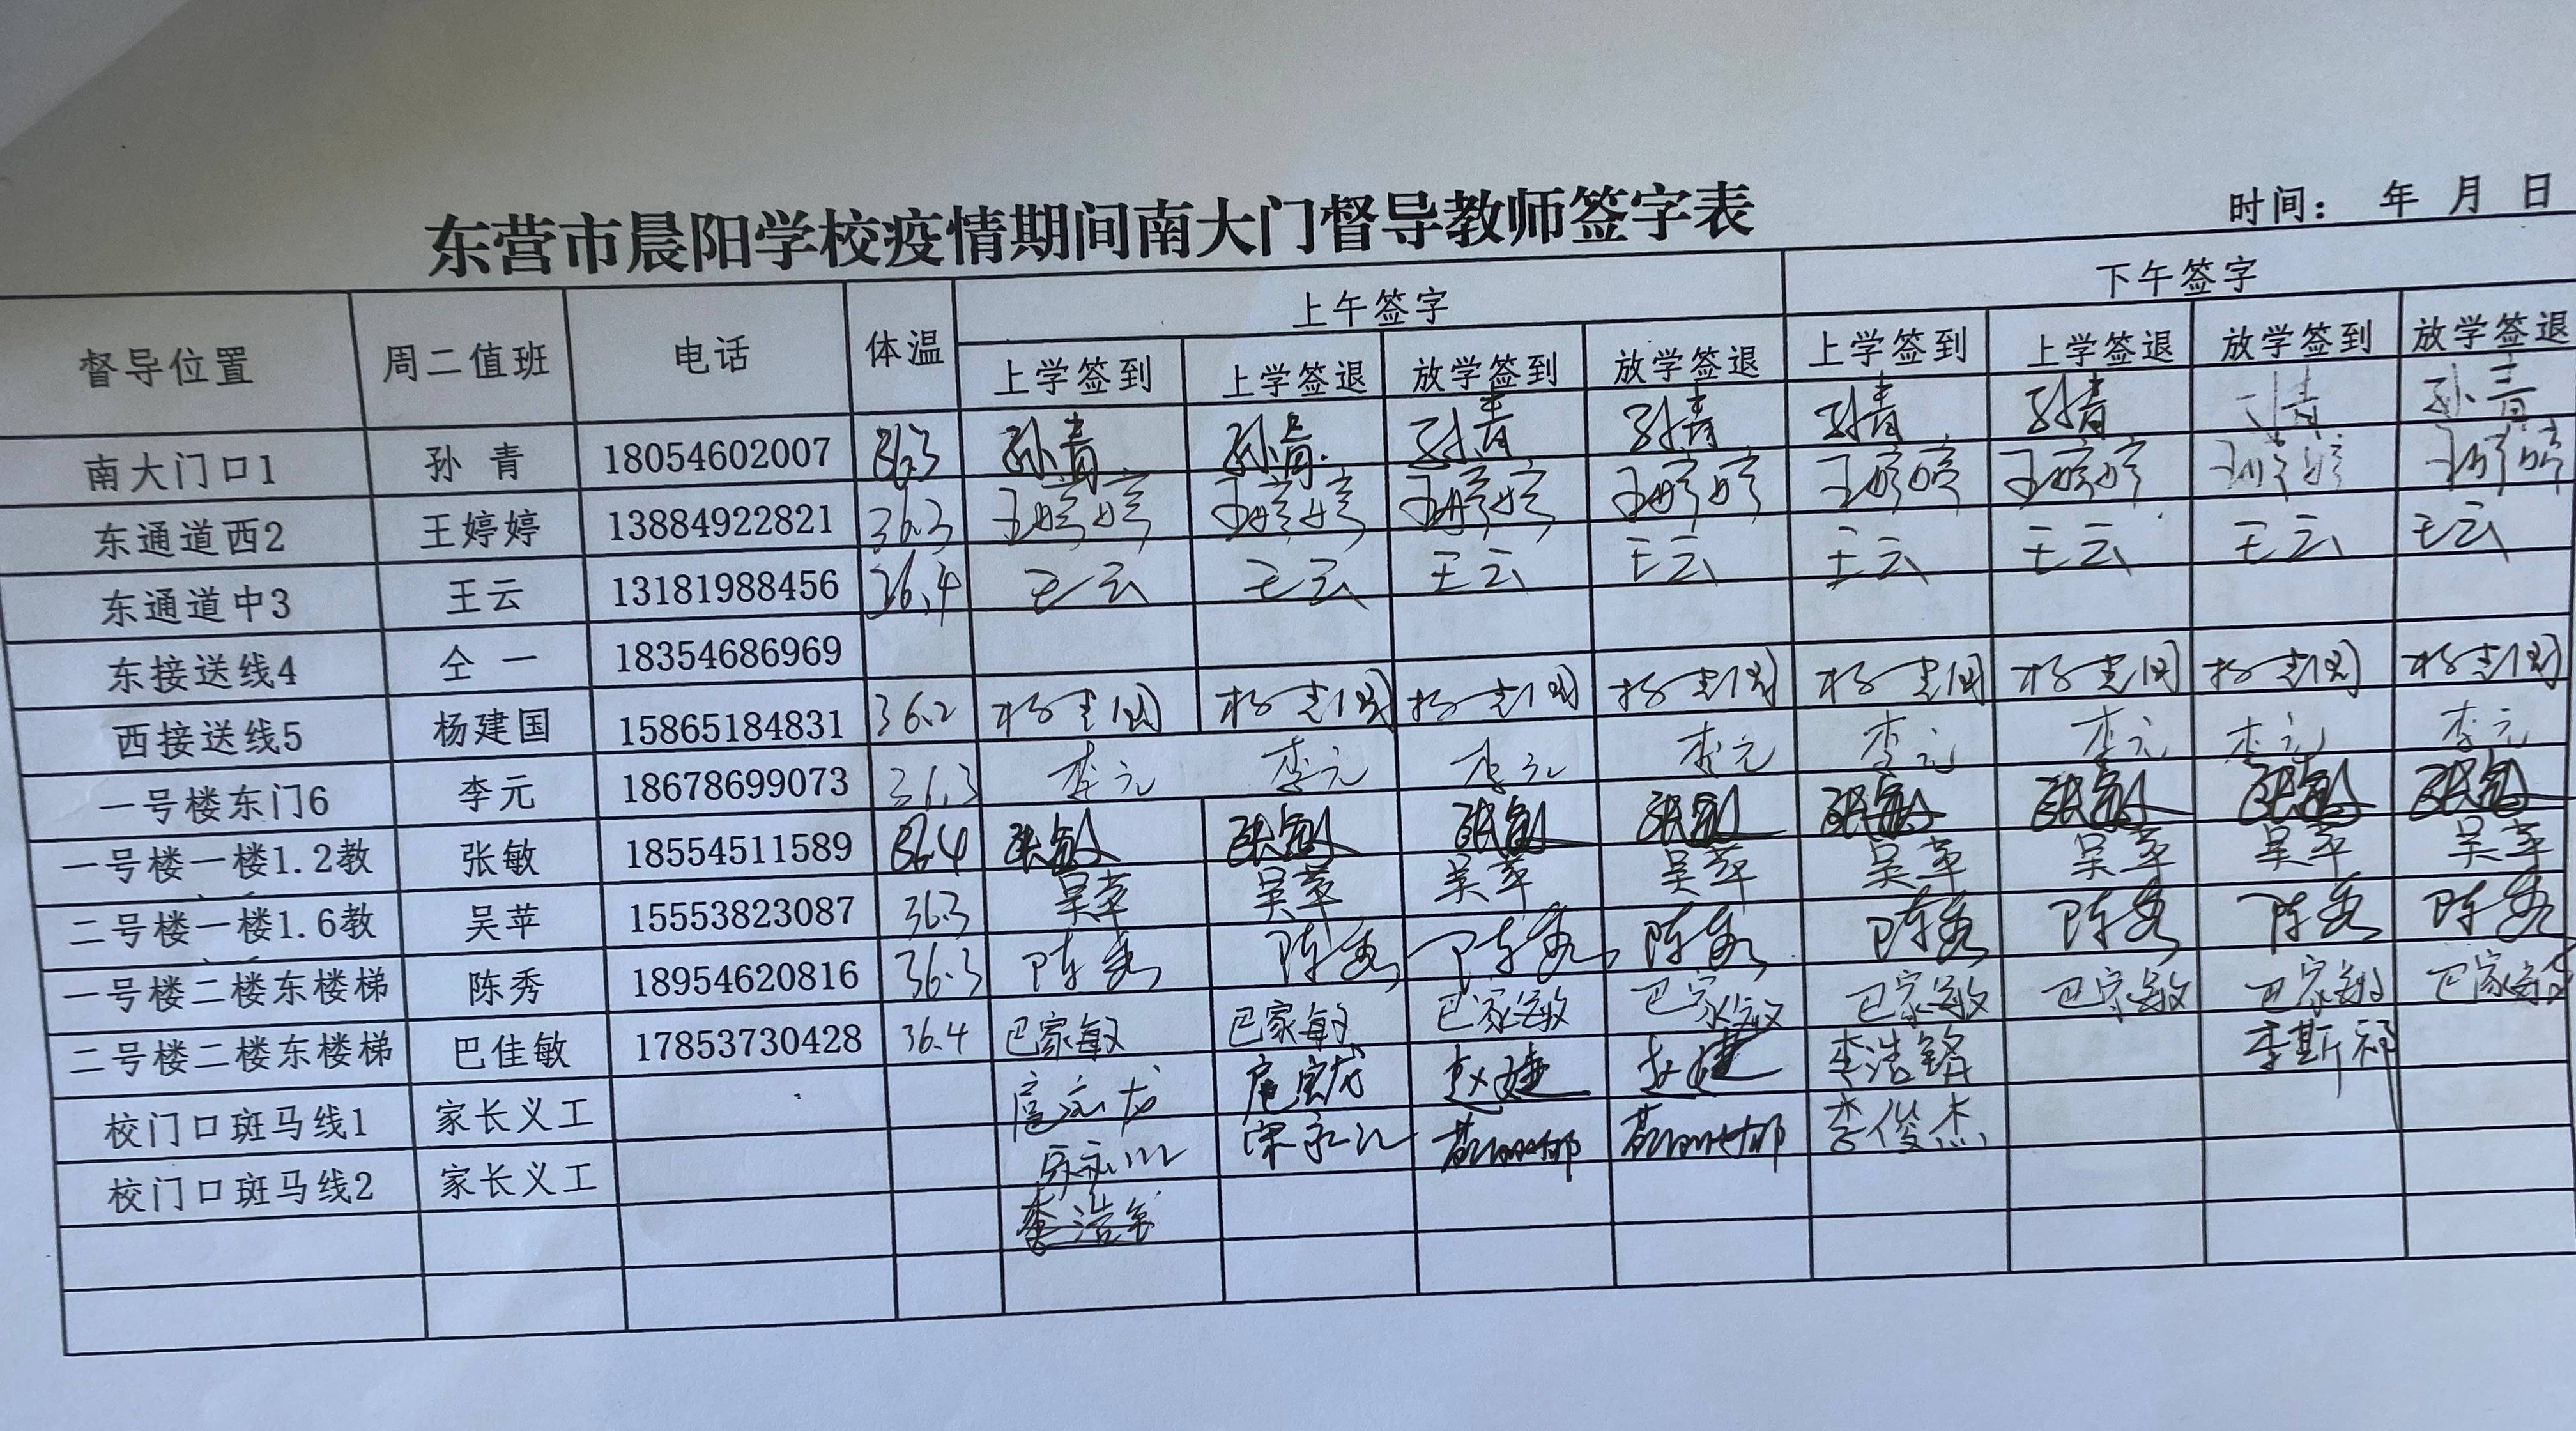 东营市晨阳学校疫情期间南大门督导教师签字表
时间： 年 月 日
督导位置 周二值班 电话 体温 上午签字 下午签字
上学签到 上学签退 放学签到 放学签退 上学签到 上学签退 放学签到 放学签退
南大门口1 孙 青 18054602007 36.3 孙青 孙青 孙青 孙青 孙青 孙青 孙青 孙青
东通道西2 王婷婷 13884922821 36.3 王婷婷 王婷婷 王婷婷 王婷婷 王婷婷 王婷婷 王婷婷 王婷婷
东通道中3 王云 13181988456 36.4 王云 王云 王云 王云 王云 王云 王云 王云
东接送线4 仝 一 18354686969
西接送线5 杨建国 15865184831 36.2 杨建国 杨建国 杨建国 杨建国 杨建国 杨建国 杨建国 杨建国
一号楼东门6 李元 18678699073 36.3 李元 李元 李元 李元 李元 李元 李元 李元
一号楼一楼1.2教 张敏 18554511589 36.4 张敏 张敏 张敏 张敏 张敏 张敏 张敏 张敏
二号楼一楼1.6教 吴苹 15553823087 36.3 吴苹 吴苹 吴苹 吴苹 吴苹 吴苹 吴苹 吴苹
一号楼二楼东楼梯 陈秀 18954620816 36.3 陈秀 陈秀 陈秀 陈秀 陈秀 陈秀 陈秀 陈秀
二号楼二楼东楼梯 巴佳敏 17853730428 36.4 巴家敏 巴家敏 巴家敏 巴家敏 巴家敏 巴家敏 巴家敏 巴家敏
校门口斑马线1 家长义工 赵婕 赵婕 李浩铭
校门口斑马线2 家长义工 李俊杰